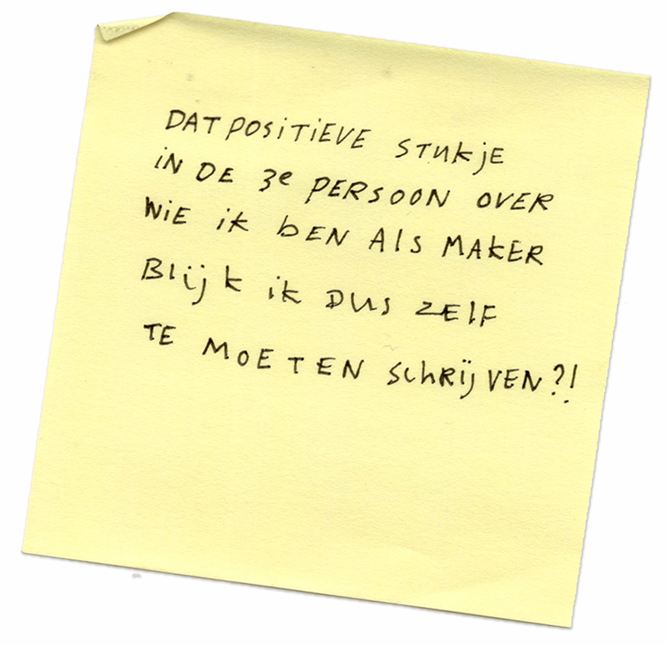 DAT POSITIEVE STUKJE
IN DE 3e PERSOON OVER
WIE ik BEN ALS MAKER
BLIJK ik DUS ZELF
TE MOETEN SCHRIJVEN?!